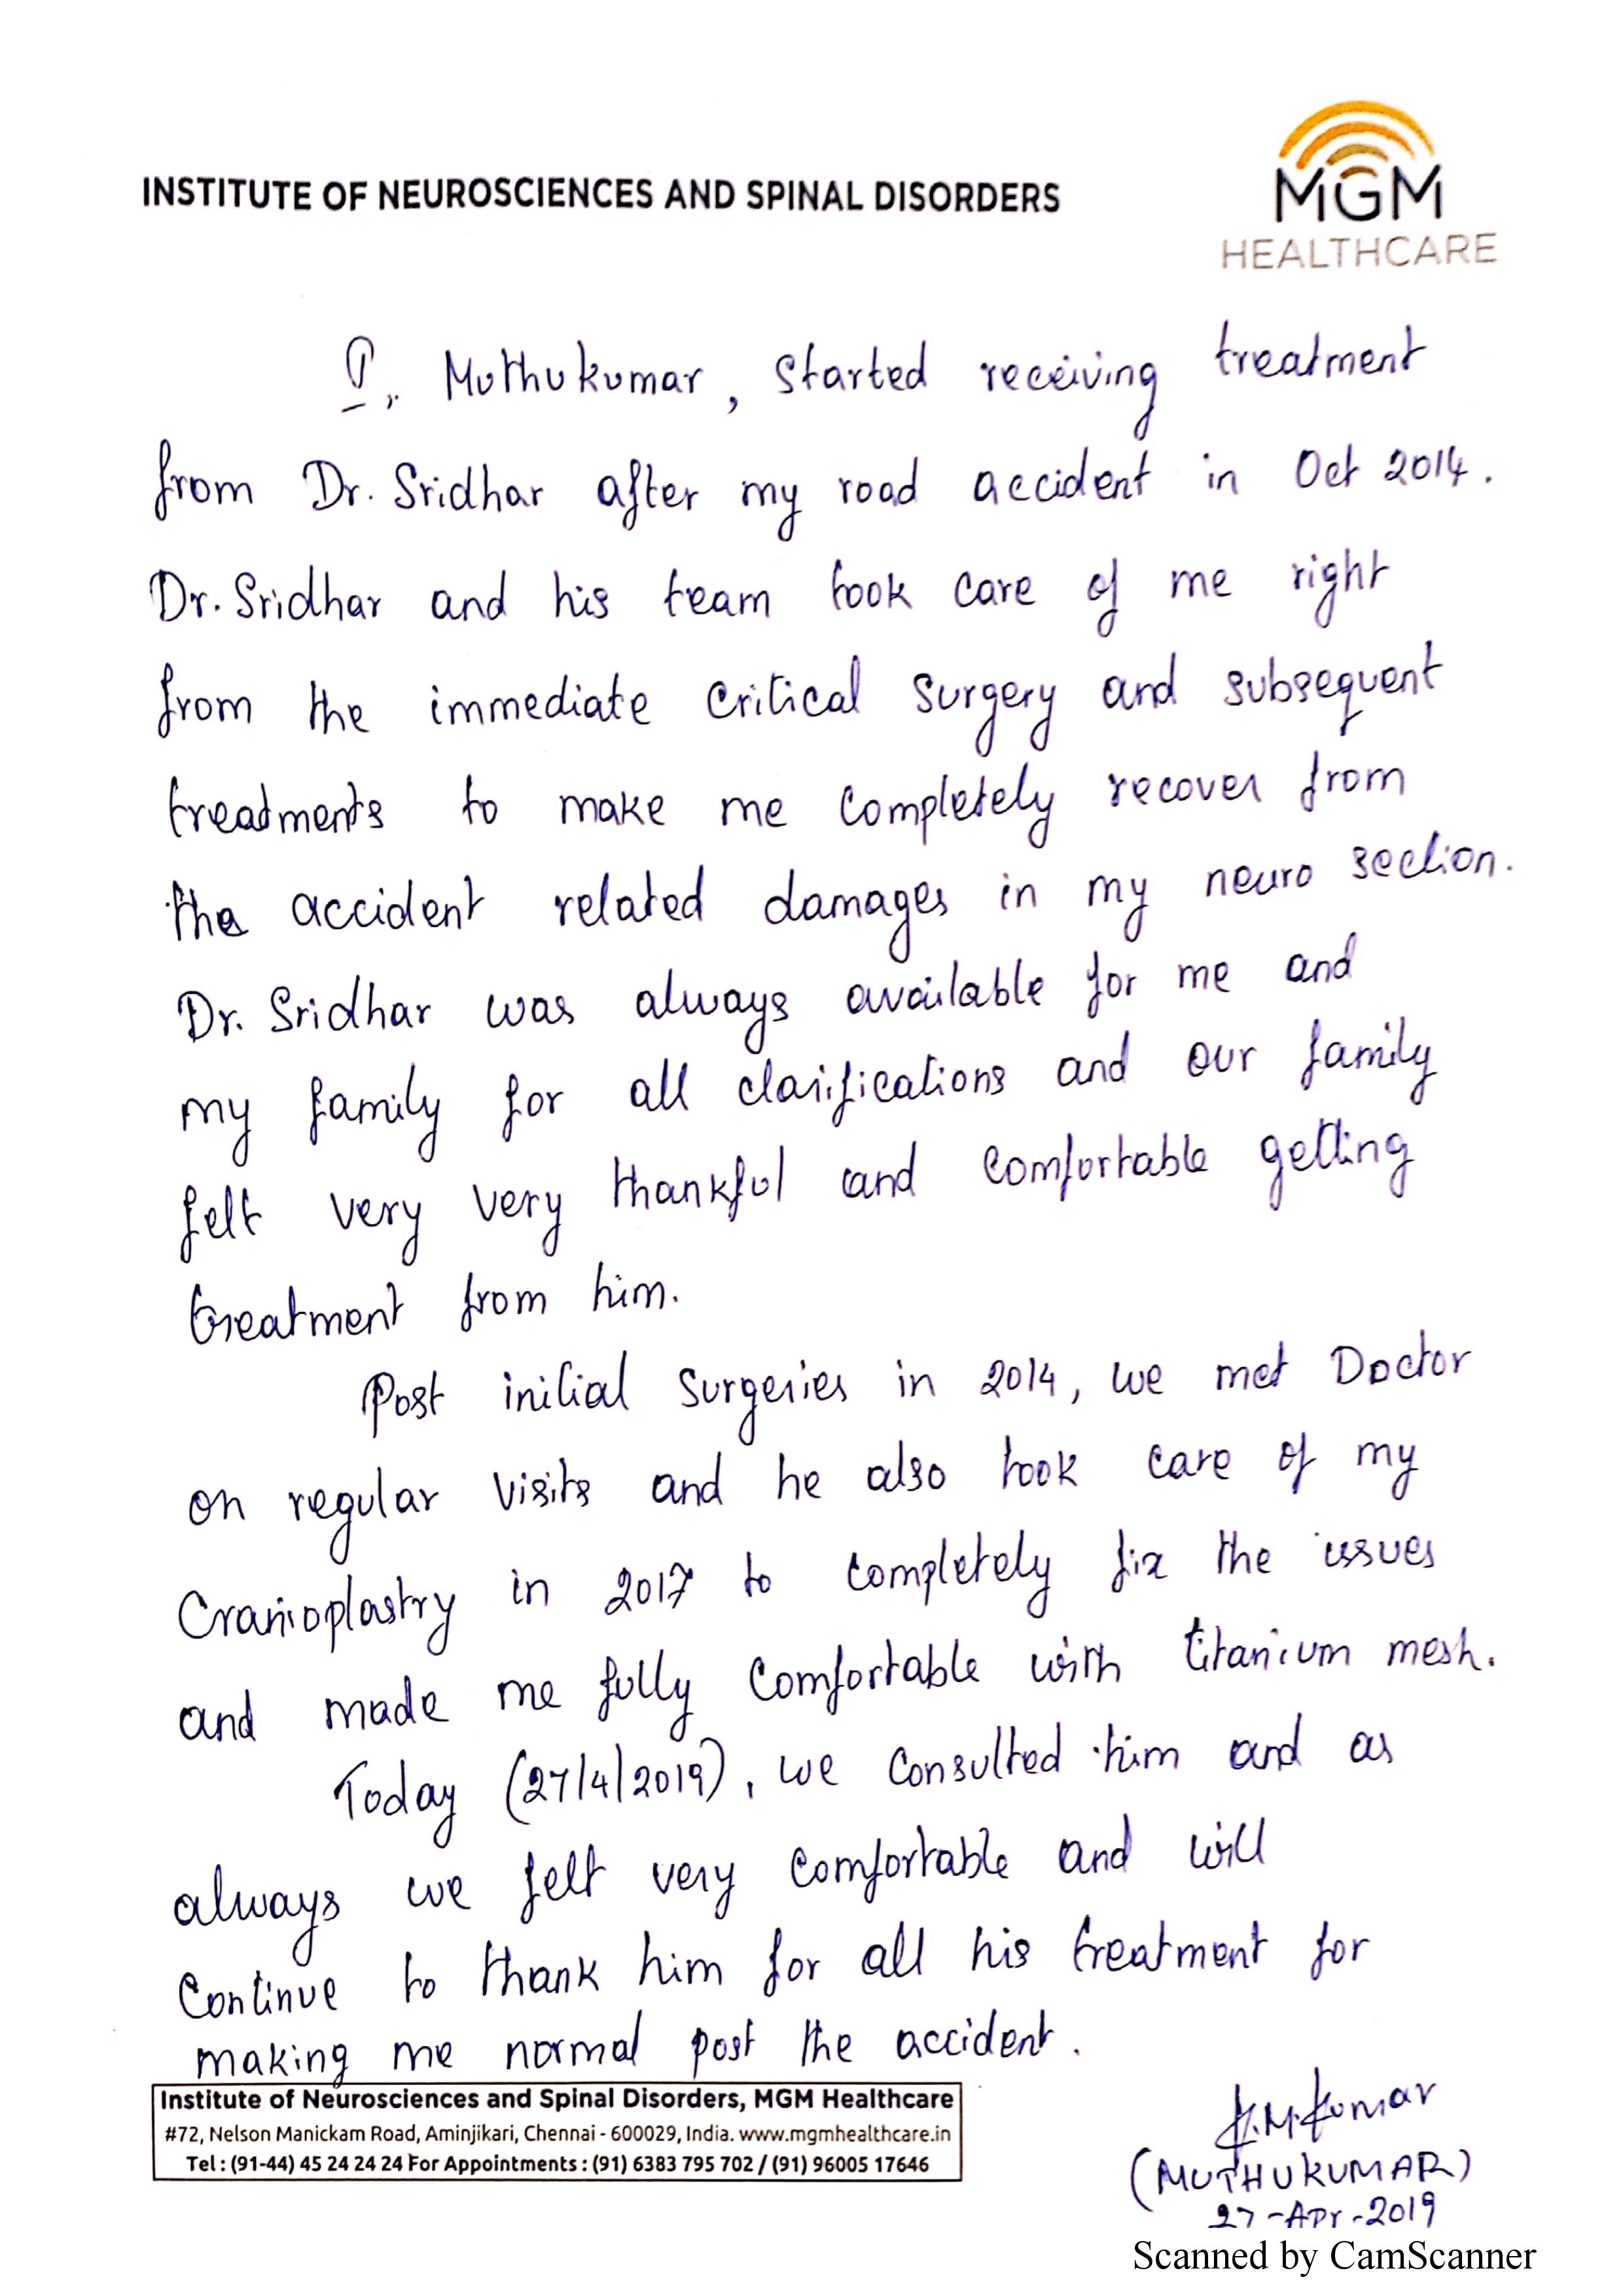 INSTITUTE OF NEUROSCIENCES AND SPINAL DISORDERS
MGM
HEALTHCARE
I, Muthukumar, started receiving treatment
from Dr. Sridhar after my road accident in Oct 2014.
Dr. Sridhar and his team took care of me right
from the immediate critical surgery and subsequent
treatments to make me completely recover from
the accident related damages in my neuro section.
Dr. Sridhar was always available for me and
my family for all clarifications and our family
felt very very thankful and comfortable getting
treatment from him.
Post initial surgeries in 2014, we met Doctor
on regular visits and he also took care of my
Cranioplastry in 2017 to completely fix the issues
and made me fully comfortable with titanium mesh.
Today (27/4/2019), we consulted him and as
always we felt very comfortable and will
continue to thank him for all his treatment for
making me normal post the accident.
Institute of Neurosciences and Spinal Disorders, MGM Healthcare
#72, Nelson Manickam Road, Aminjikari, Chennai - 600029, India. www.mgmhealthcare.in
Tel : (91-44) 45 24 24 24 For Appointments : (91) 6383 795 702 / (91) 96005 17646
K.M.Kumar
(MUTHUKUMAR)
27-Apr-2019
Scanned by CamScanner